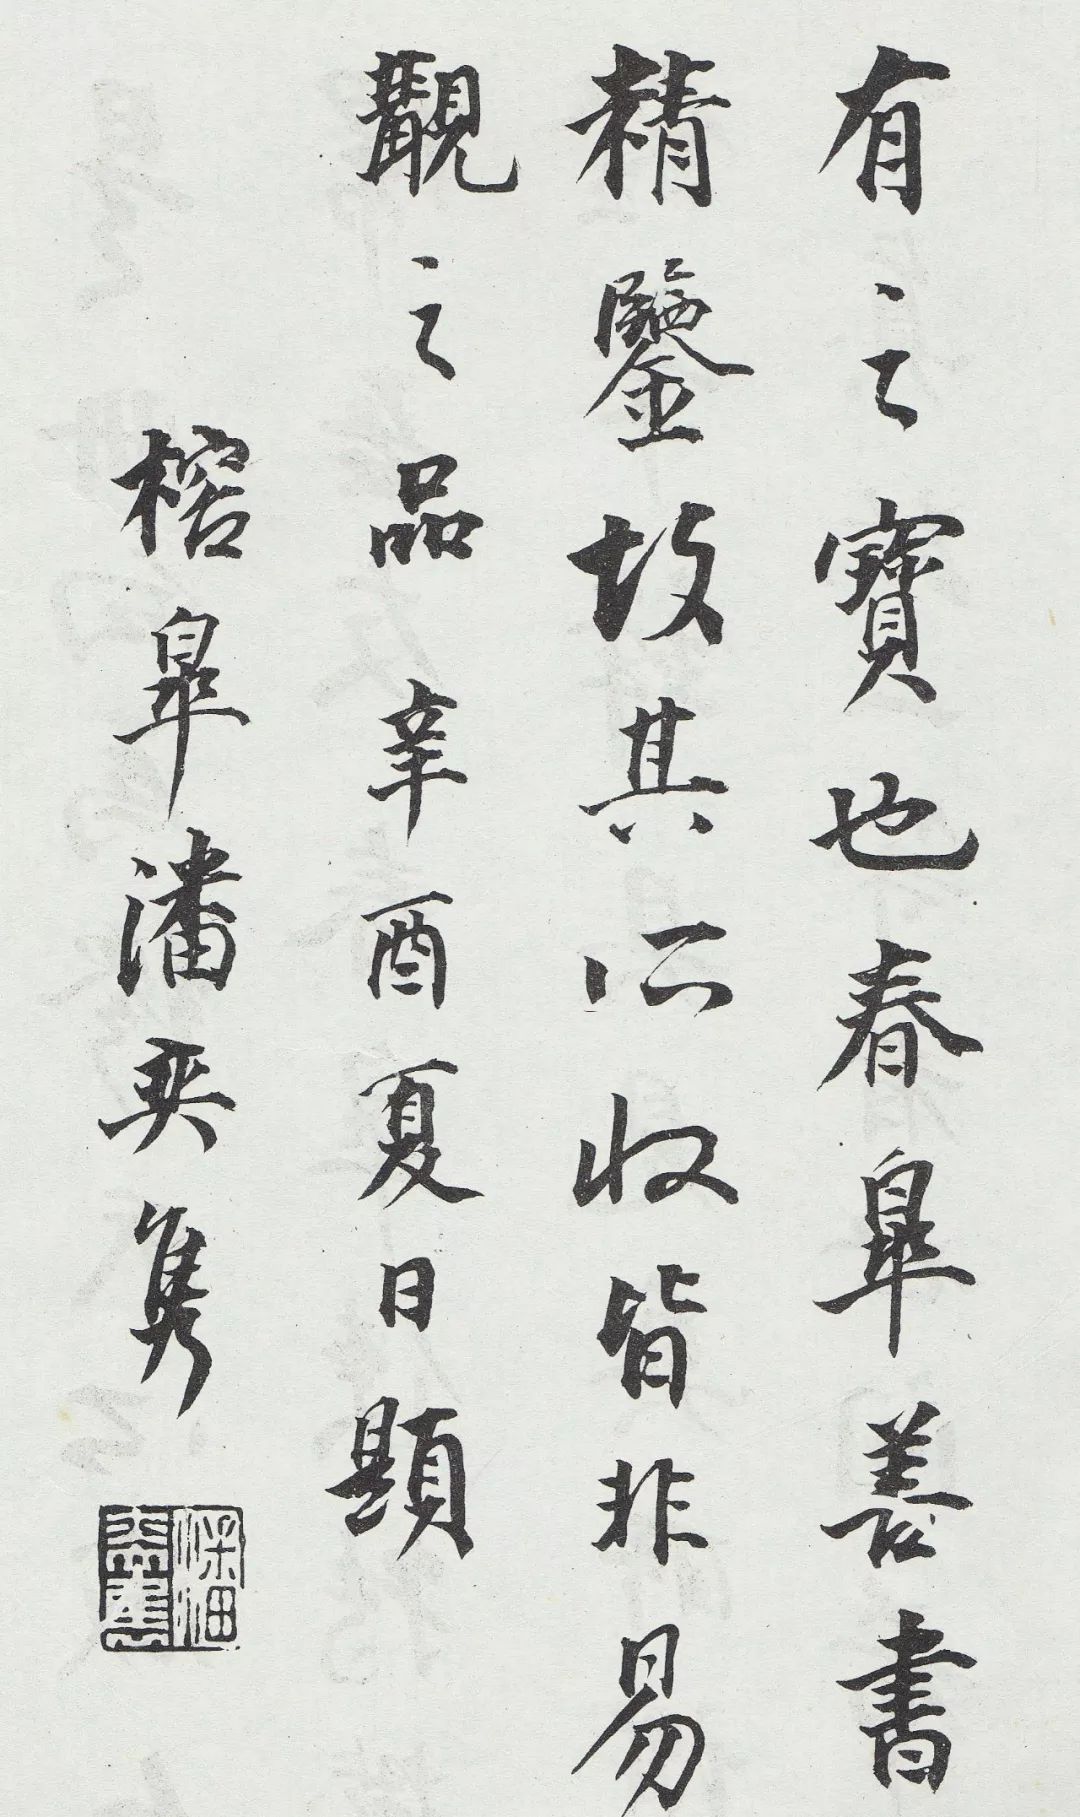 有之寶也春皋善書
精鑒故其所收皆非易
覯之品辛酉夏日題
榕皋潘奕雋